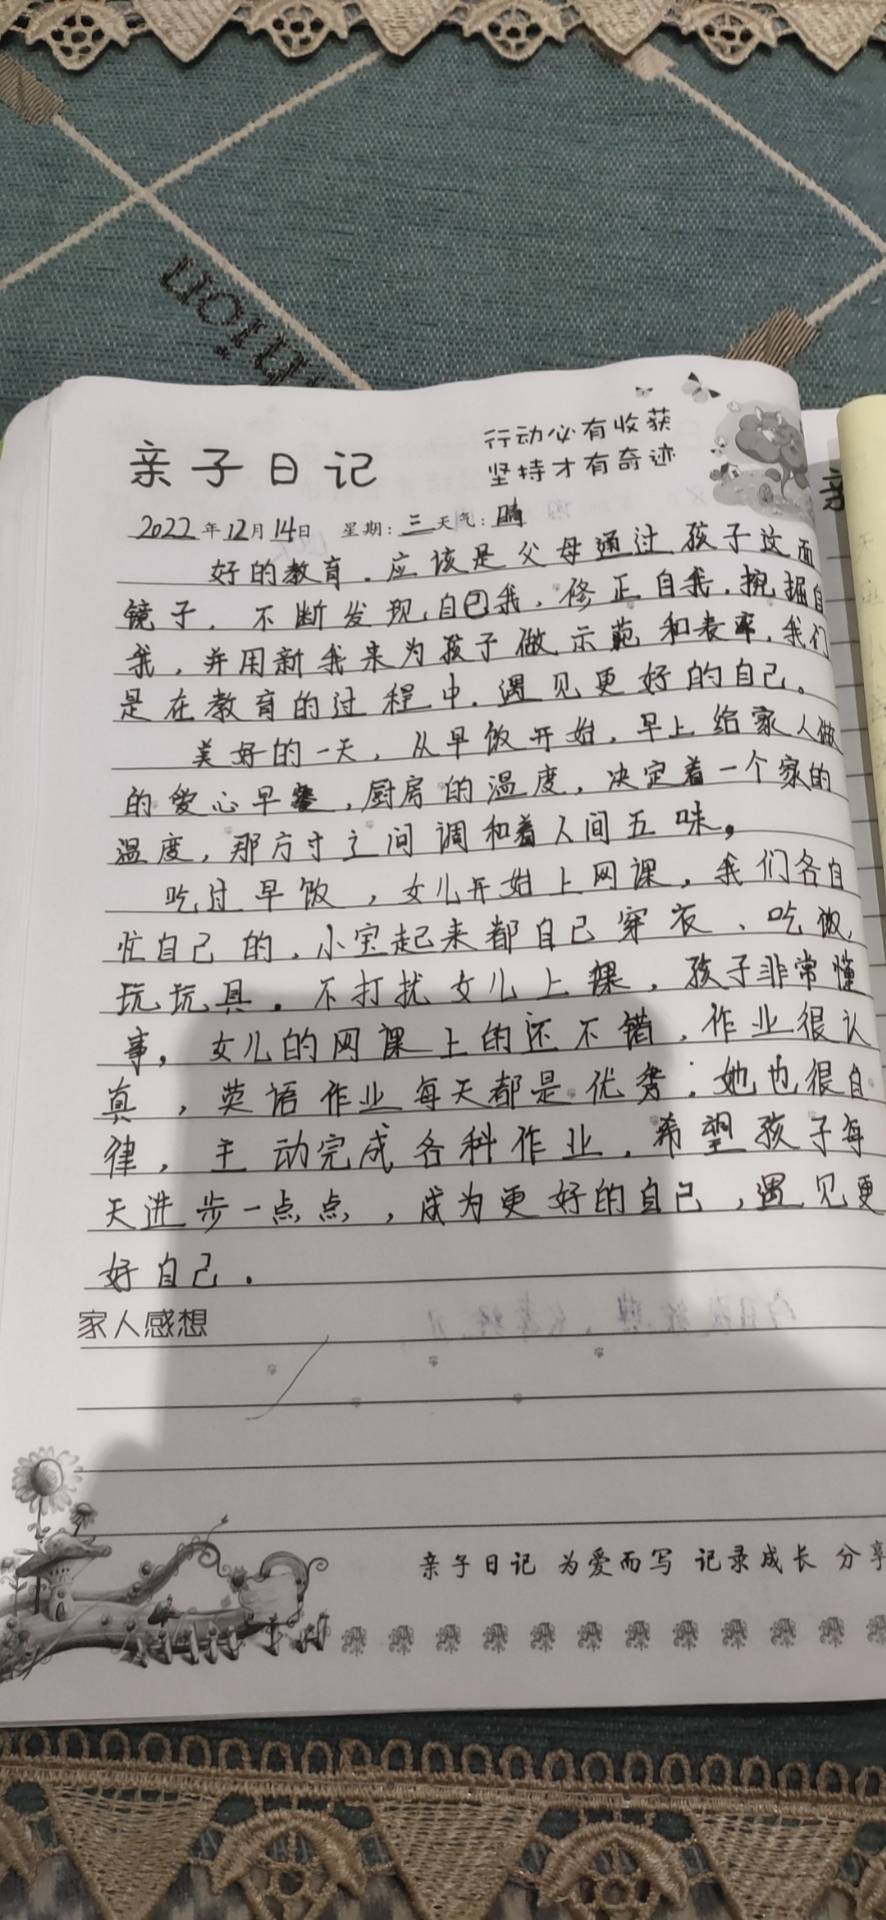 亲子日记
行动必有收获
坚持才有奇迹
2022年12月14日 星期:三天气:晴
好的教育.应该是父母通过孩子这面
镜子.不断发现自己我.修正自我.挖掘自
我,并用新我来为孩子做示范和表率.我们
是在教育的过程中.遇见更好的自己。
美好的一天,从早饭开始,早上给家人做
的爱心早餐,厨房的温度,决定着一个家的
温度,那方寸之间调和着人间五味。
吃过早饭,女儿开始上网课,我们各自
忙自己的,小宝起来都自己穿衣、吃饭,
玩玩具.不打扰女儿上课,孩子非常懂
事,女儿的网课上的还不错,作业很认
真,英语作业每天都是优秀.她也很自
律,主动完成各科作业.希望孩子每
天进步一点点,成为更好的自己,遇见更
好自己.
家人感想
亲子日记 为爱而写 记录成长 分享